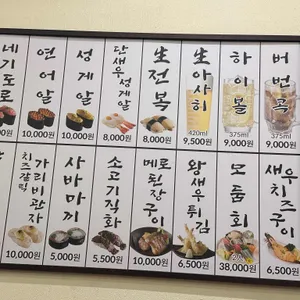 네기도로
연어알
10,000원
성게알
10,000원
단새우성게알
8,000원
生전복
8,000원
生아사히
420ml
9,500원
하이볼
375ml
9,000원
버번콕
375ml
9,000원
치즈갈릭
가리비관자
10,000원
사바마끼
5,000원
소고기직화
5,500원
메로된장구이
10,000원
왕새우튀김
6,500원
모듬회
38,000원
새우치즈구이
6,500원